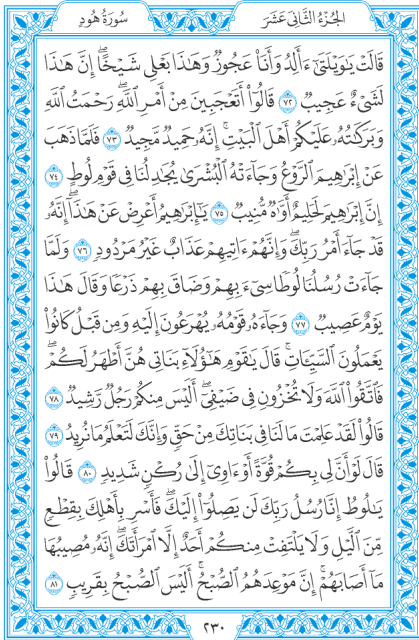 الجزء الثاني عشر
سورة هود
قَالَتْ يَٰوَيْلَتَىٰٓ ءَأَلِدُ وَأَنَا۠ عَجُوزٌ وَهَٰذَا بَعْلِى شَيْخًا ۖ إِنَّ هَٰذَا
لَشَىْءٌ عَجِيبٌ ٧٢ قَالُوٓا۟ أَتَعْجَبِينَ مِنْ أَمْرِ ٱللَّهِ ۖ رَحْمَتُ ٱللَّهِ
وَبَرَكَٰتُهُۥ عَلَيْكُمْ أَهْلَ ٱلْبَيْتِ ۚ إِنَّهُۥ حَمِيدٌ مَّجِيدٌ ٧٣ فَلَمَّا ذَهَبَ
عَنْ إِبْرَٰهِيمَ ٱلرَّوْعُ وَجَآءَتْهُ ٱلْبُشْرَىٰ يُجَٰدِلُنَا فِى قَوْمِ لُوطٍ ٧٤
إِنَّ إِبْرَٰهِيمَ لَحَلِيمٌ أَوَّٰهٌ مُّنِيبٌ ٧٥ يَٰٓإِبْرَٰهِيمُ أَعْرِضْ عَنْ هَٰذَآ ۖ إِنَّهُۥ
قَدْ جَآءَ أَمْرُ رَبِّكَ ۖ وَإِنَّهُمْ ءَاتِيهِمْ عَذَابٌ غَيْرُ مَرْدُودٍ ٧٦ وَلَمَّا
جَآءَتْ رُسُلُنَا لُوطًا سِىٓءَ بِهِمْ وَضَاقَ بِهِمْ ذَرْعًا وَقَالَ هَٰذَا
يَوْمٌ عَصِيبٌ ٧٧ وَجَآءَهُۥ قَوْمُهُۥ يُهْرَعُونَ إِلَيْهِ وَمِن قَبْلُ كَانُوا۟
يَعْمَلُونَ ٱلسَّيِّـَٔاتِ ۚ قَالَ يَٰقَوْمِ هَٰٓؤُلَآءِ بَنَاتِى هُنَّ أَطْهَرُ لَكُمْ ۖ
فَٱتَّقُوا۟ ٱللَّهَ وَلَا تُخْزُونِ فِى ضَيْفِىٓ ۖ أَلَيْسَ مِنكُمْ رَجُلٌ رَّشِيدٌ ٧٨
قَالُوا۟ لَقَدْ عَلِمْتَ مَا لَنَا فِى بَنَاتِكَ مِنْ حَقٍّ وَإِنَّكَ لَتَعْلَمُ مَا نُرِيدُ ٧٩
قَالَ لَوْ أَنَّ لِى بِكُمْ قُوَّةً أَوْ ءَاوِىٓ إِلَىٰ رُكْنٍ شَدِيدٍ ٨٠ قَالُوا۟
يَٰلُوطُ إِنَّا رُسُلُ رَبِّكَ لَن يَصِلُوٓا۟ إِلَيْكَ ۖ فَأَسْرِ بِأَهْلِكَ بِقِطْعٍ
مِّنَ ٱلَّيْلِ وَلَا يَلْتَفِتْ مِنكُمْ أَحَدٌ إِلَّا ٱمْرَأَتَكَ ۖ إِنَّهُۥ مُصِيبُهَا
مَآ أَصَابَهُمْ ۚ إِنَّ مَوْعِدَهُمُ ٱلصُّبْحُ ۚ أَلَيْسَ ٱلصُّبْحُ بِقَرِيبٍ ٨١
٢٣٠